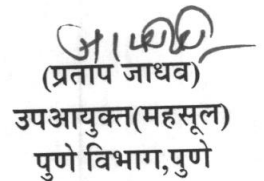 (प्रताप जाधव)
उपआयुक्त(महसूल)
पुणे विभाग,पुणे